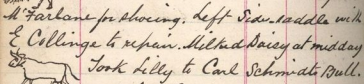 McFarlane for shoeing. Left Side-saddle with
E Collinge to repair. Milked Daisy at midday
Took Lilly to Carl Schmidts Bull